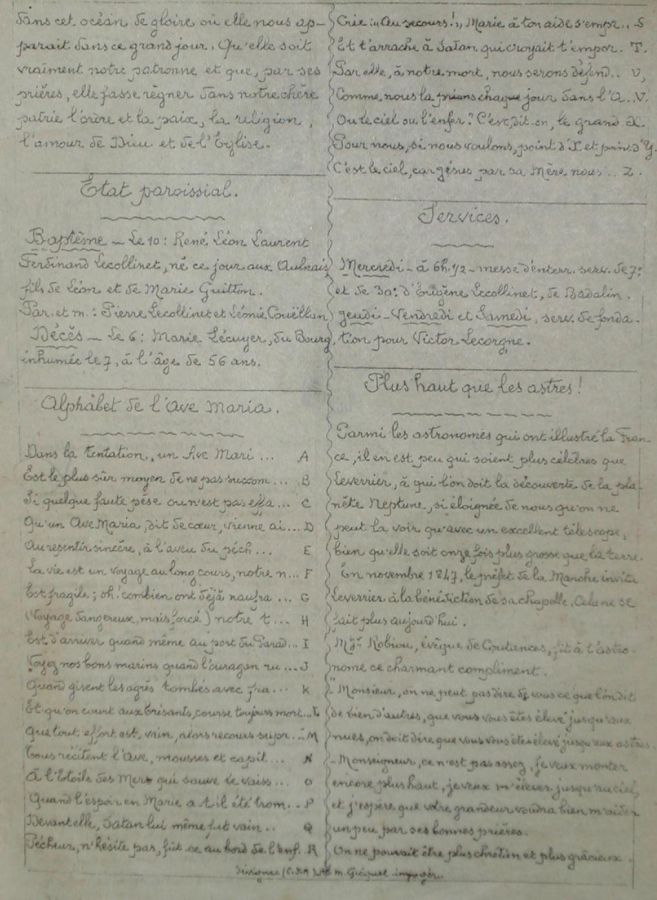 dans cet océan de gloire où elle nous ap-
parait dans ce grand jour. Qu'elle soit
vraiment notre patronne et que, par ses
prières, elle fasse régner dans notre chère
patrie l'ordre et la paix, la religion,
l'amour de Dieu et de l'Eglise.
Etat paroissial.
Baptême - Le 10 : René Léon Laurent
Ferdinand Lecollinet, né ce jour aux Aulnais
fils de Léon et de Marie Guitton.
Par. et m. : Pierre Lecollinet et Léonie Couëllan
Décès - Le 6 : Marie Lécuyer, du Bourg,
inhumée le 7, à l'âge de 56 ans.
Alphabet de l'Ave Maria.
Dans la tentation, un Ave Mari ... A
Est le plus sûr moyen de ne pas succom... B
Si quelque faute pèse ou n'est pas effa... C
Qu'un Ave Maria, dit de cœur, vienne ai... D
Au repentir sincère, à l'aveu du péch... E
La vie est un voyage au long cours, notre n... F
Est fragile ; oh! combien ont déjà naufra ... G
(Voyage dangereux, mais forcé) notre t... H
Est d'arriver quand même au port du Parad... I
Voyez nos bons marins quand l'ouragan ru... J
Quand gisent les agrès tombés avec fra... K
Et qu'on court aux brisants, course toujours mort... L
Que tout effort est vain, alors recours supr... M
Tous récitent l'Ave, mousses et capit... N
A l'Etoile des Mers qui sauve le vaiss... O
Quand l'espoir en Marie a t il été trom... P
Devant elle, Satan lui même fut vain... Q
Pécheur, n'hésite pas, fût ce au bord de l'enf. R
Crie "Au secours!", Marie à ton aide s'empr... S
Et t'arrache à Satan qui croyait t'empor. T.
Par elle, à notre mort, nous serons défend.. U,
Comme nous la prions chaque jour dans l'A.. V.
Ou le ciel ou l'enfer? C'est, dit-on, le grand X.
Pour nous, si nous voulons, point d'X et point d'Y.
C'est le ciel, car Jésus par sa Mère nous .. Z.
Services.
Mercredi - à 6h. 1/2 - messe d'enterr. serv. de 7e
et de 30e d'Eugène Lecollinet, de Badalin.
Jeudi - Vendredi et Samedi, serv. de fonda-
tion pour Victor Lecorgne.
Plus haut que les astres!
Parmi les astronomes qui ont illustré la Fran-
ce, il en est peu qui soient plus célèbres que
Leverrier, à qui l'on doit la découverte de la pla-
nète Neptune, si éloignée de nous qu'on ne
peut la voir qu'avec un excellent télescope,
bien qu'elle soit onze fois plus grosse que la terre.
En novembre 1847, le préfet de la Manche invita
Leverrier à la bénédiction de sa chapelle. Cela ne se
fait plus aujourd'hui.
Mgr Robiou, évêque de Coutances, fit à l'astro-
nome ce charmant compliment.
- Monsieur, on ne peut pas dire de vous ce que l'on dit
de bien d'autres, que vous vous êtes élevé jusqu'aux
nues, on doit dire que vous vous êtes élevé jusqu'aux astres.
- Monseigneur, ce n'est pas assez, je veux monter
encore plus haut, je veux m'élever jusqu'au ciel,
et j'espère que votre grandeur voudra bien m'aider
un peu par ses bonnes prières.
On ne pouvait être plus chrétien et plus gracieux.